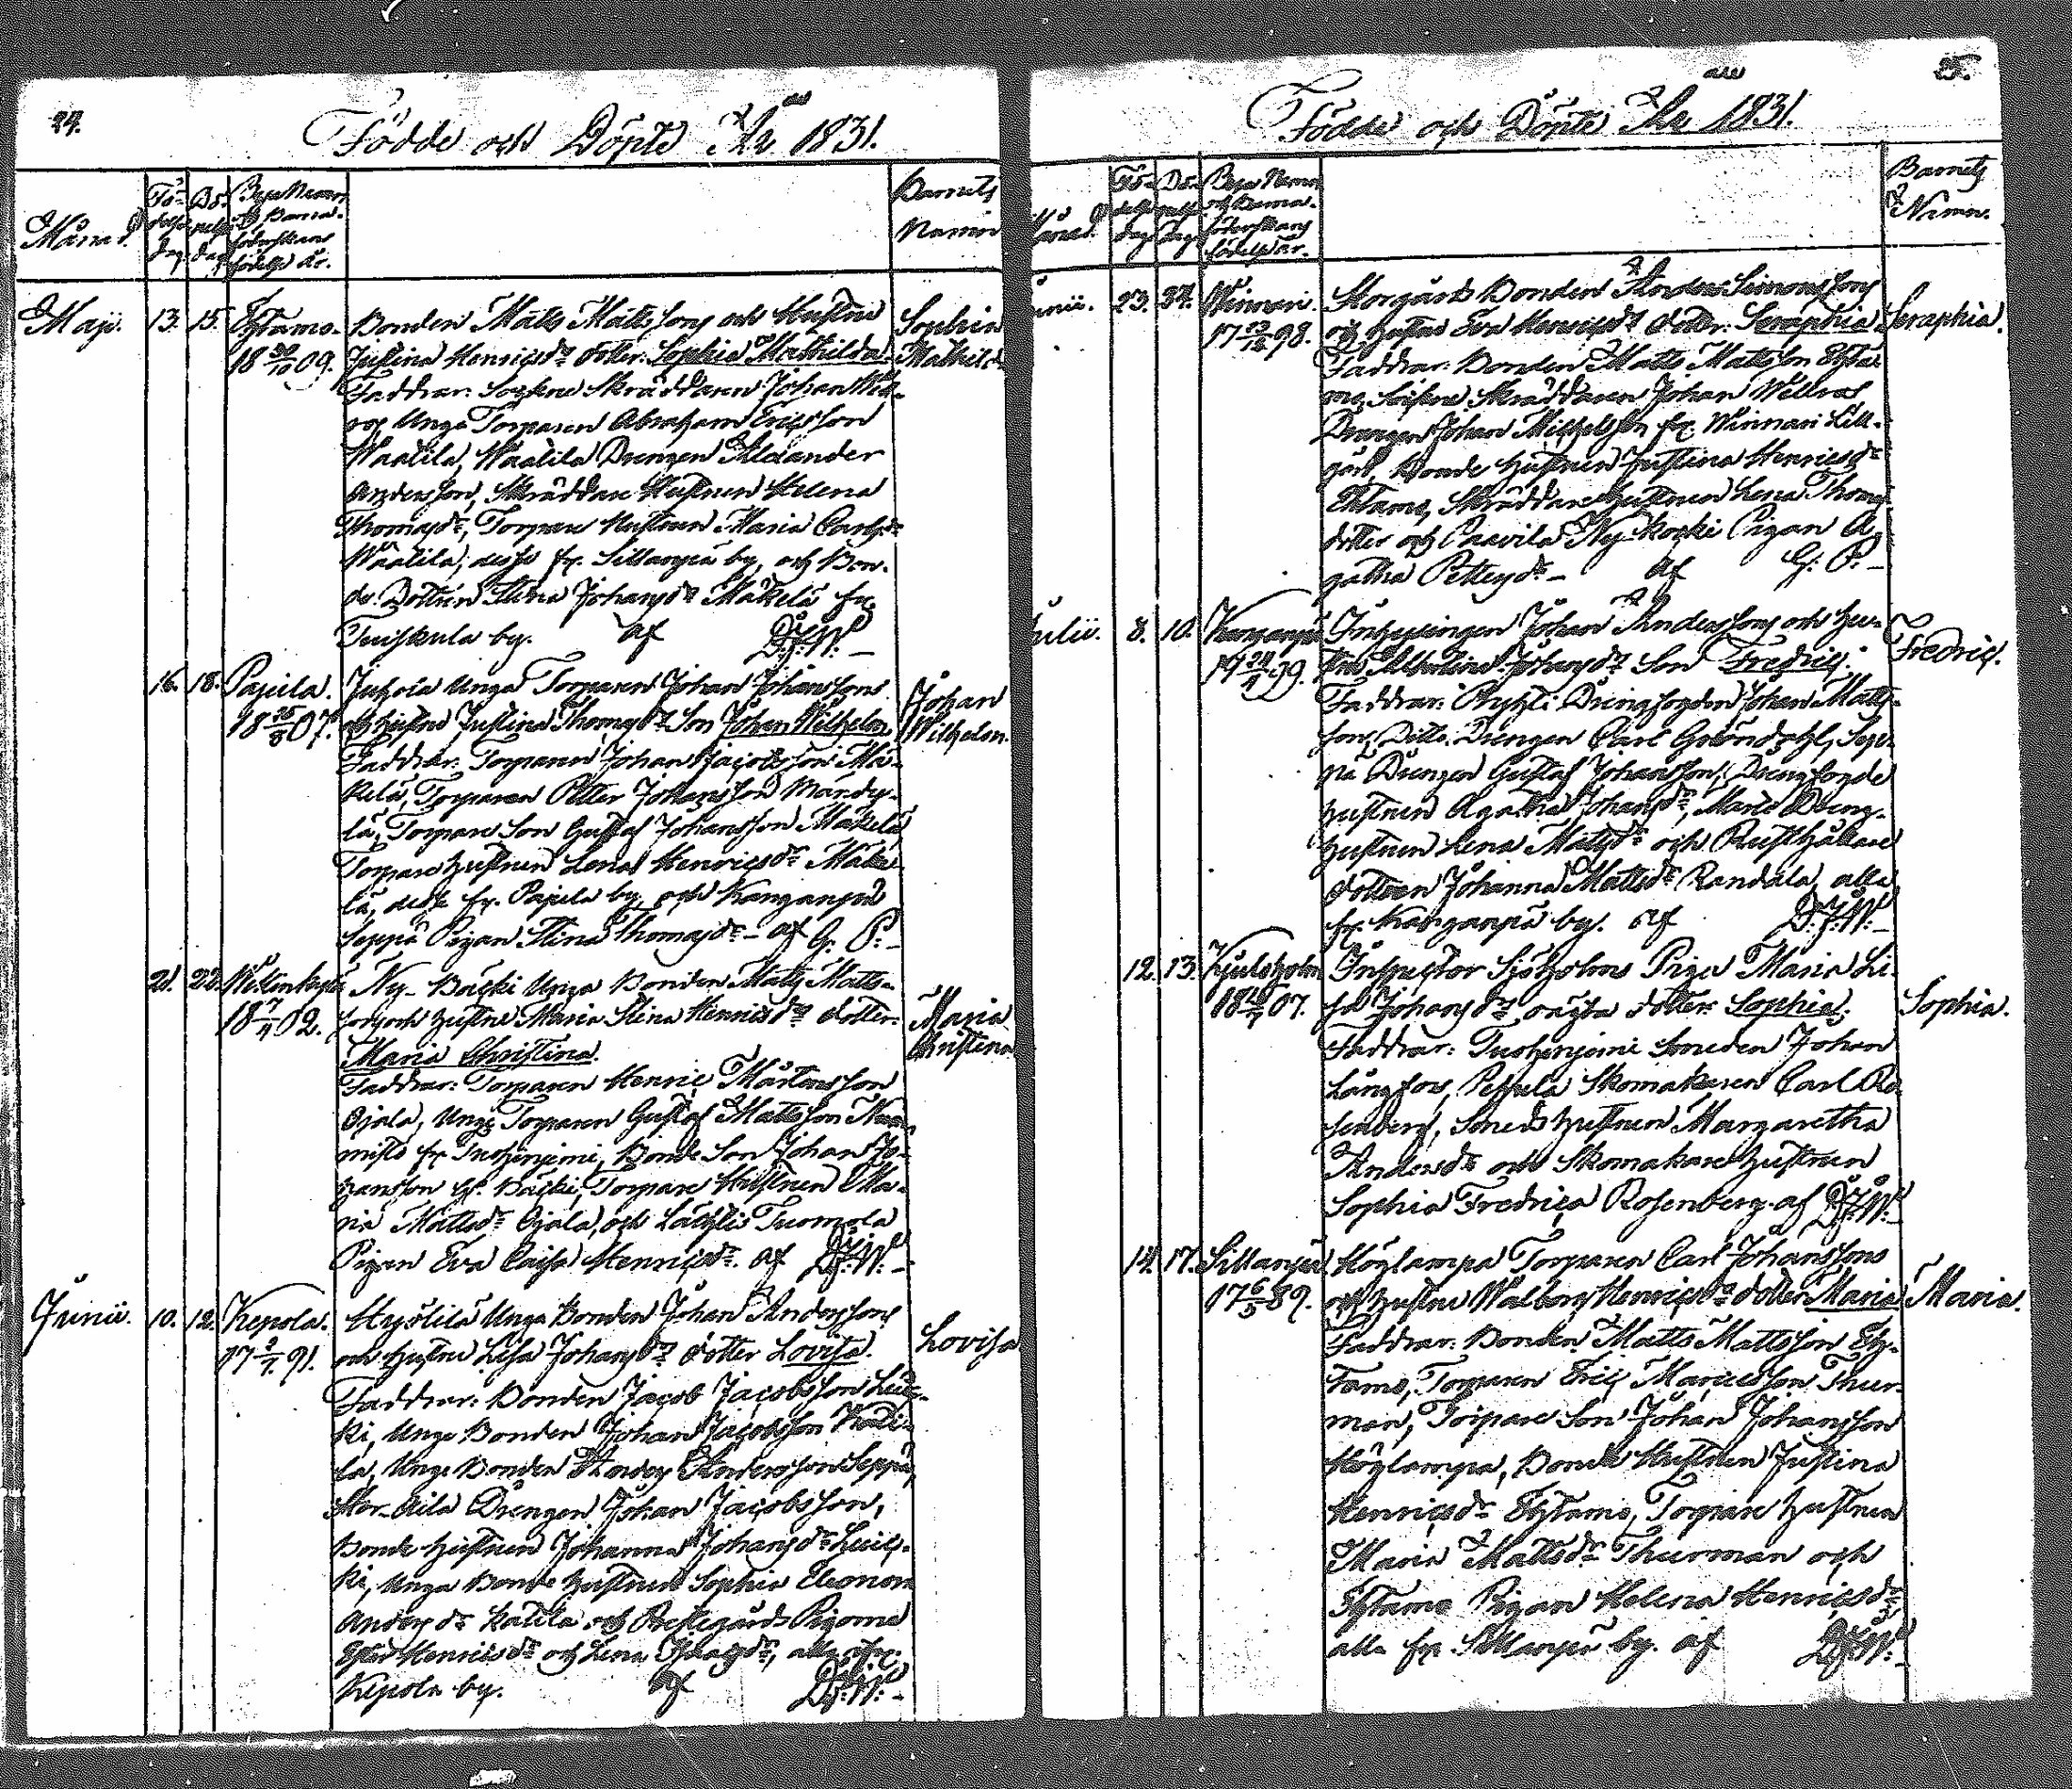 24.
Födde och Döpte År 1831.
Månad.
Fö-
delse
dag.
Dö-
pelse
dag
Byns Namn
och Barna-
föderskans
födelse år.
Barnets
Namn
Maji.
13.
15.
Eytamo.
18 30/10 09.
Bonden Matts Mattssons och Hustru
Justina Henricsdr dotter: Sophia Mathilda.
Faddrar: Sockne Skräddaren Johan Well-
ros, Unge Torparen Abraham Ericsson
Waalila, Waalila Drengen Alexander
Andersson, Skräddare Hustrun Helena
Thomasdr, Torpare Hustrun Maria Carlsdr
Waalila, desse fr. Sillanpä by, och Bon-
de Dottren Stina Johansdr Mäkelä fr.
Tuiskula by. af D.J.W.
Sophia
Mathilda
16.
18.
Papila.
18 07.
Juhola Unga Torparen Johan Johanssons
och hustru Justina Thomasdr Son Johan Wilhelm.
Faddrar: Torparen Johan Jacobsson Mä-
kelä, Torparen Petter Johansson
lä, Torpare Son Gustaf Johansson Mäkelä
Torpare hustrun Lena Henricsdr Mäke-
lä, desse fr. Papila by och Kanganpä
Seppä Pigan Stina Thomasdr af G. P.
Johan
Wilhelm.
21.
22.
18 7/4 02.
Ny-Bäcki Unga Bonden Matts Matts-
sons och hustru Maria Stina Henricsdr dotter:
Maria Christina.
Faddrar: Torparen Henric Mårtensson
Ojala, Unge Torparen Gustaf Mattsson
fr. Tuohenjemi, Bonde Son Johan Jo-
hansson G. Bäcki, Torpare Hustrun Ma-
ria Mattsdr Ojala, och Lätylis Tuomola
Pigan Eva Caisa Henricsdr. af D.J.W.
Maria
Christina
Junii.
10.
12.
Kepola.
17 91.
Unga Bonden Johan Anderssons
och hustru Lisa Johansdr dotter Lovisa.
Faddrar: Bonden Jacob Jacobsson Luic-
ki, Unge Bonden Johan Jacobsson
la, Unge Bonden Anders Andersson Seppä,
Stor-Aila Drengen Johan Jacobsson,
Bonde hustrun Johanna Johansdr Luic-
ki, Unga Bonde hustrun Sophia Eleonora
Andersdr och Prestegårds Pigorne
Ester Henricsdr och Lena Johansdr, alla fr.
Kepola by. af D.J.W.
Lovisa
25.
Födde och Döpte År 1831.
Månad.
Fö-
delse
dag
Dö-
pelse
dag
Byns Namn
och Barna-
föderskans
födelse år.
Barnets
Namn.
Junii.
23.
Winnari.
17 98.
Storgårds Bonden Anders Simonssons
och hustrus Eva Henricsdr dotter: Seraphia
Faddrar: Bonden Matts Mattsson Eyta-
mo, Sockne Skräddaren Johan Wellros
Drengen Johan Michelsson fr. Winnari Lill-
gård, Bonde hustrun Justina Henricsdr
Eytamo, Skräddare hustrun Lena Thomas
dotter och Paavila Ny-koski Pigan A-
gatha Pettersdr af G. P.
Seraphia.
Julii.
8.
10.
Kanganpä
17 99.
Inhysingen Johan Anderssons och hu-
stru Albertina Johansdr Son Fredric.
Faddrar: Drengfogden Johan Matts-
son, Ditto Drengen Carl Gröndahl, Sep-
pä Drengen Gustaf Johansson, Drengfogde
hustrun Agatha Johansdr, Dreng-
hustrun Lena Mattsdr och Rusthållare
dottren Johanna Mattsdr Randala, alla
fr. Kanganpä by. af D.J.W.
Fredric.
12.
13.
Kjuloholm
18 07.
Inspector Sjöholms Piga Maria Li-
sa Johansdrs oäkta dotter: Sophia.
Faddrar: Tuohenjemi Smeden Johan
Långfors, Pessula Skomakaren Carl Ro-
senberg, Smeds hustrun Margaretha
Andersdr och Skomakare hustrun
Sophia Fredrica Rosenberg. af D.J.W.
Sophia.
14.
17.
Sillanpä
17 6/5 89.
Höglampa Torparen Carl Johanssons
och hustru Walborg Henricsdr dotter Maria
Faddrar: Bonden Matts Mattsson Ey-
tamo, Torparen Eric Marcusson Thur-
man, Torpare Son Johan Johansson
Höglampa, Bonde Hustrun Justina
Henricsdr Eytamo, Torpare hustrun
Maria Mattsdr Thurman och
Eytamo Pigan Helena Henricsdr,
alla fr. Sillanpä by. af D.J.W.
Maria.